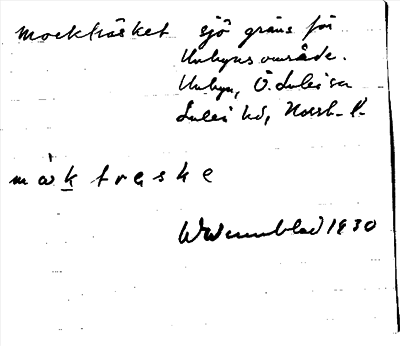 Mockträsket sjö gräns för
Unbyns område.
Unbyn, Ö. Luleå sn
Luleå hd, Norrb. l.
måktreske
W Wennblad 1930